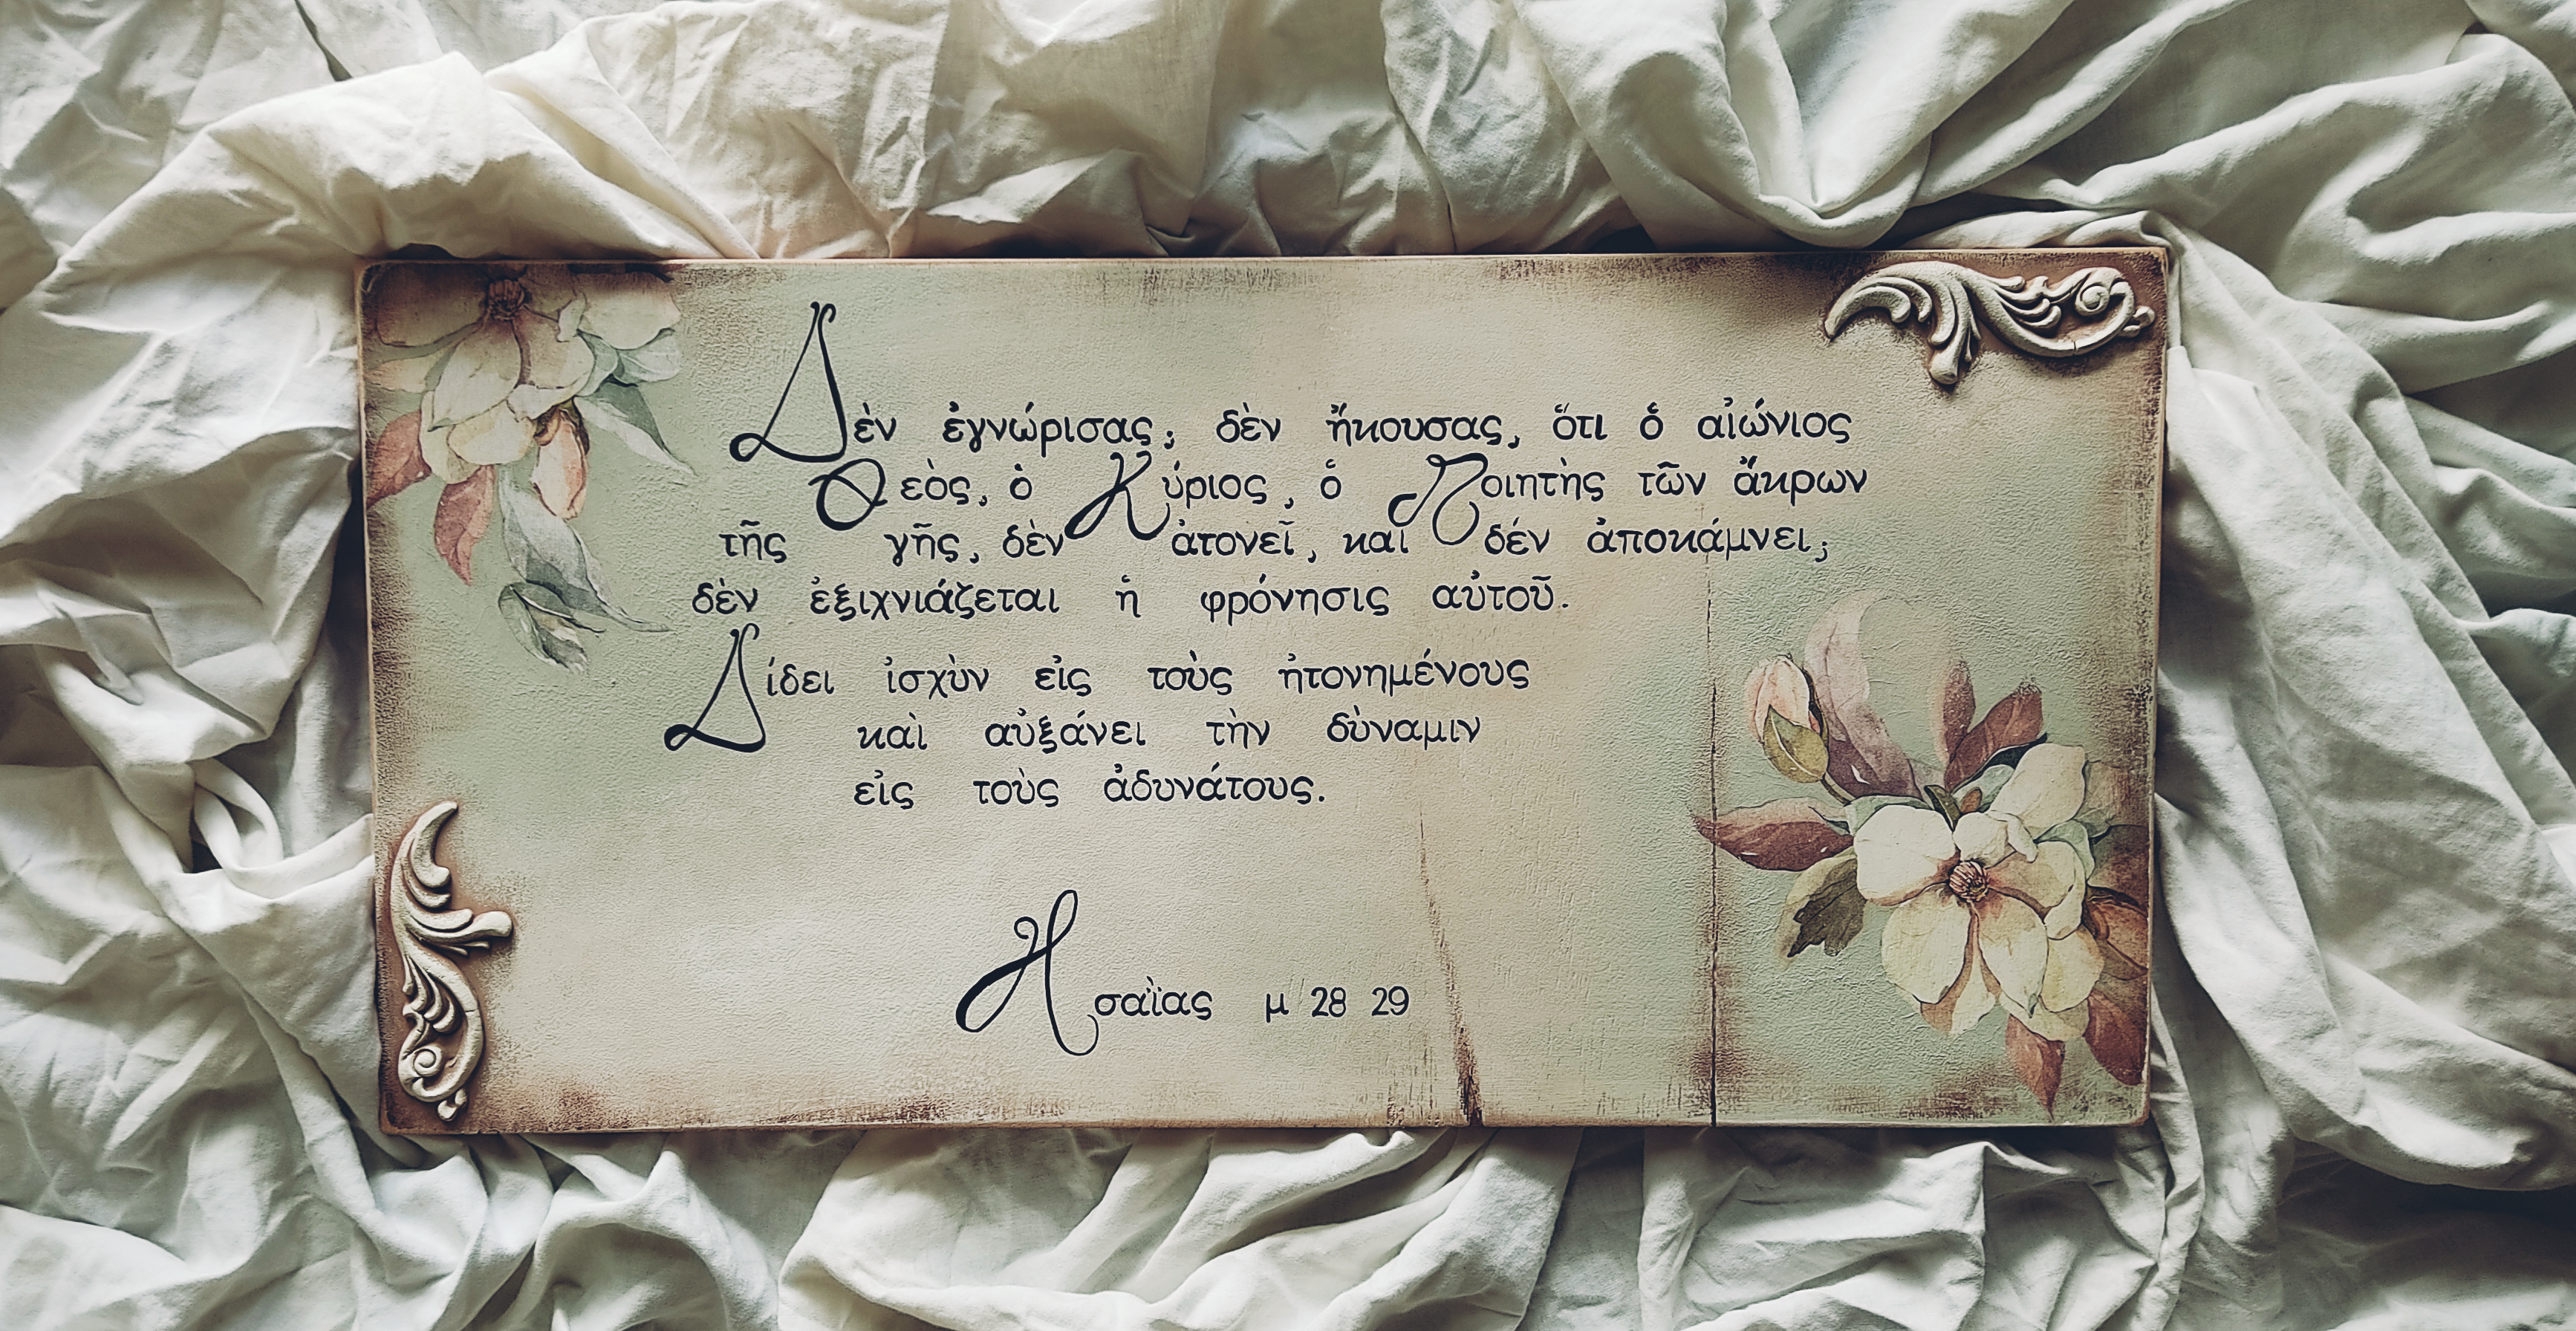 Δὲν ἐγνώρισας; δὲν ἤκουσας, ὅτι ὁ αἰώνιος
Θεὸς, ὁ Κύριος, ὁ Ποιητὴς τῶν ἄκρων
τῆς γῆς, δὲν ἀτονεῖ, καὶ δέν ἀποκάμνει;
δὲν ἐξιχνιάζεται ἡ φρόνησις αὐτοῦ.
Δίδει ἰσχὺν εἰς τοὺς ἠτονημένους
καὶ αὐξάνει τὴν δὺναμιν
εἰς τοὺς ἀδυνάτους.
Ησαΐας μ 28 29